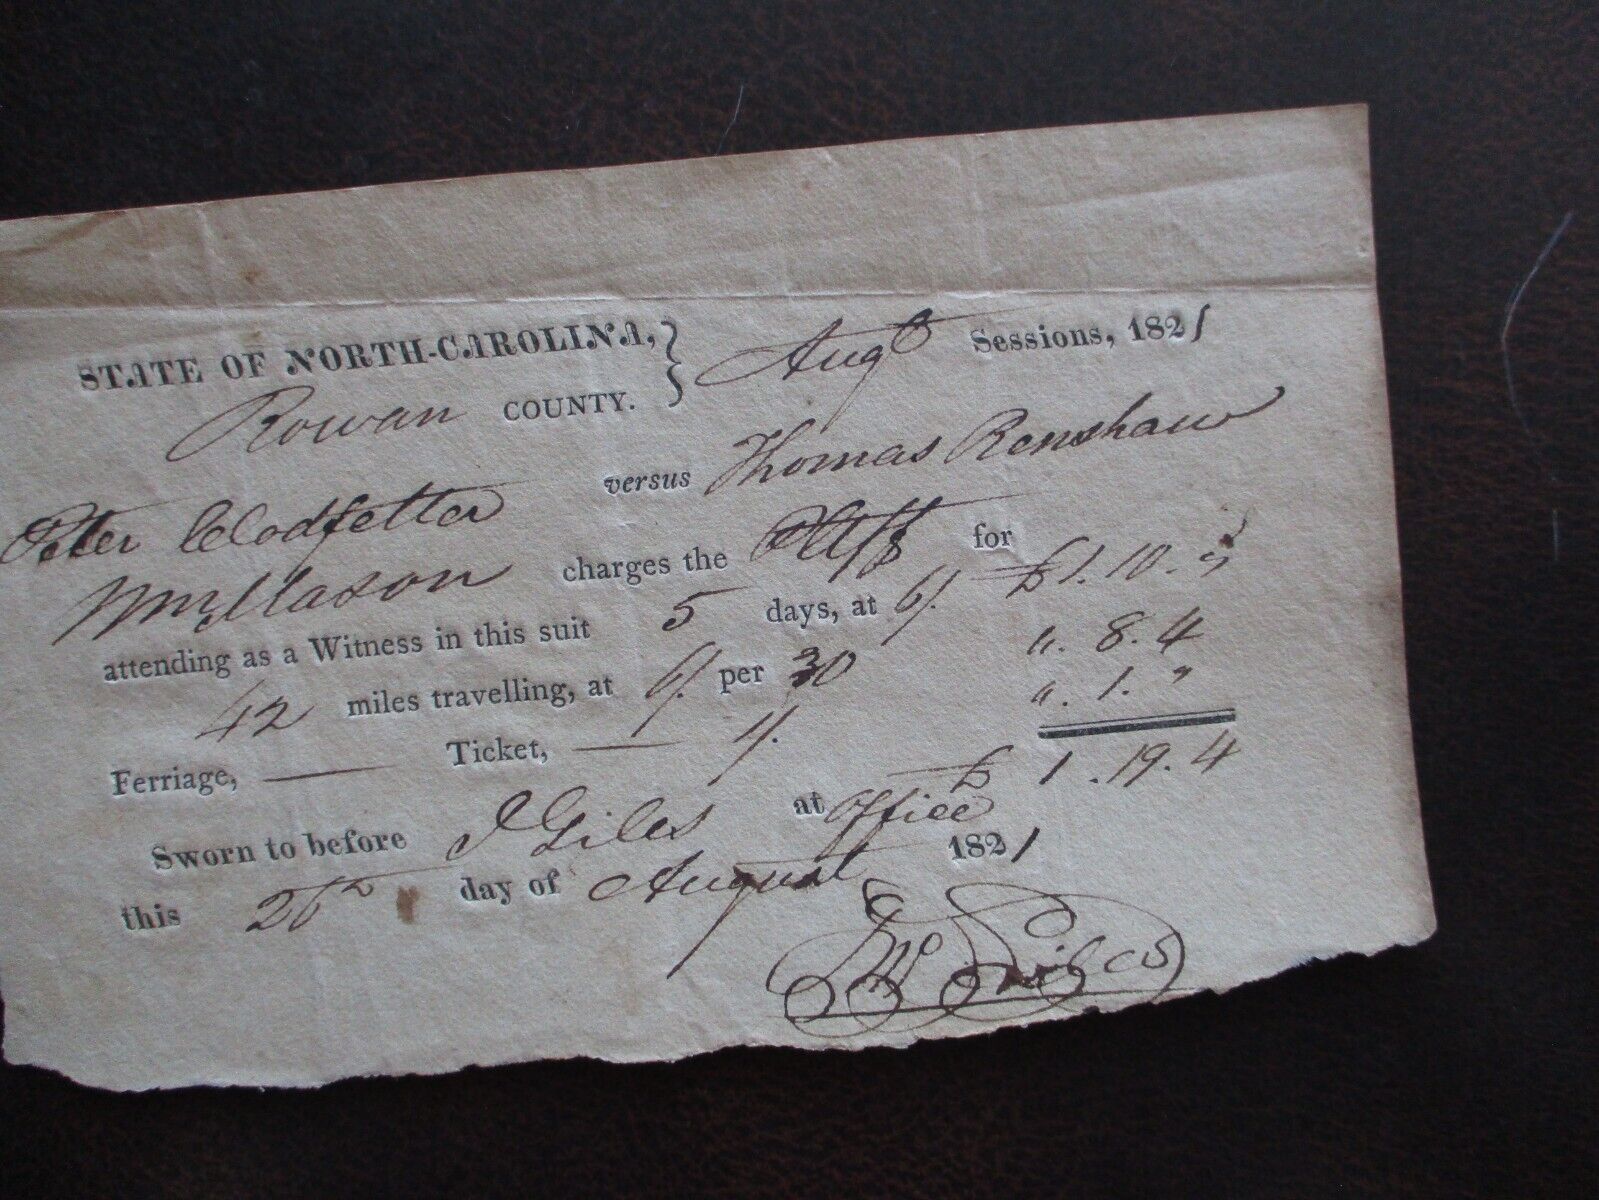 STATE OF NORTH-CAROLINA, } Augt Sessions, 1821
Rowan COUNTY.
Peter Clodfelter versus Thomas Renshaw
Wm Mason charges the Pltff for
attending as a Witness in this suit 5 days, at 6/. £1.10."
42 miles travelling, at 6/. per 30 ". 8. 4
Ferriage, — Ticket, — 1/. ". 1. "
£ 1. 19. 4
Sworn to before J Giles at Office
this 26th day of August 1821
Jno Giles